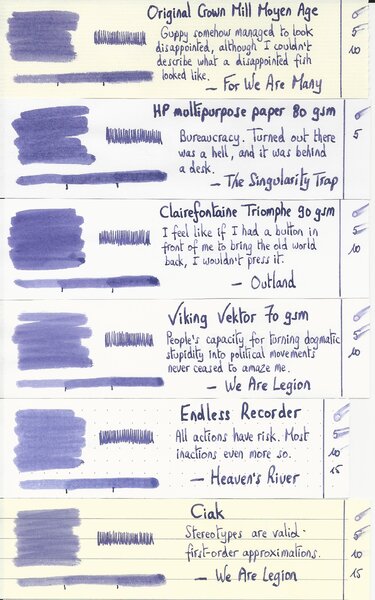 Original Crown Mill Moyen Age
Guppy somehow managed to look
disappointed, although I couldn't
describe what a disappointed fish
looked like.
— For We Are Many
5
10
HP multipurpose paper 80 gsm
Bureaucracy. Turned out there
was a hell, and it was behind
a desk.
— The Singularity Trap
5
Clairefontaine Triomphe 90 gsm
I feel like if I had a button in
front of me to bring the old world
back, I wouldn't press it.
— Outland
5
10
Viking Vektor 70 gsm
People's capacity for turning dogmatic
stupidity into political movements
never ceased to amaze me.
— We Are Legion
5
10
Endless Recorder
All actions have risk. Most
inactions even more so.
— Heaven's River
5
10
15
Ciak
Stereotypes are valid
first-order approximations.
— We Are Legion
5
10
15